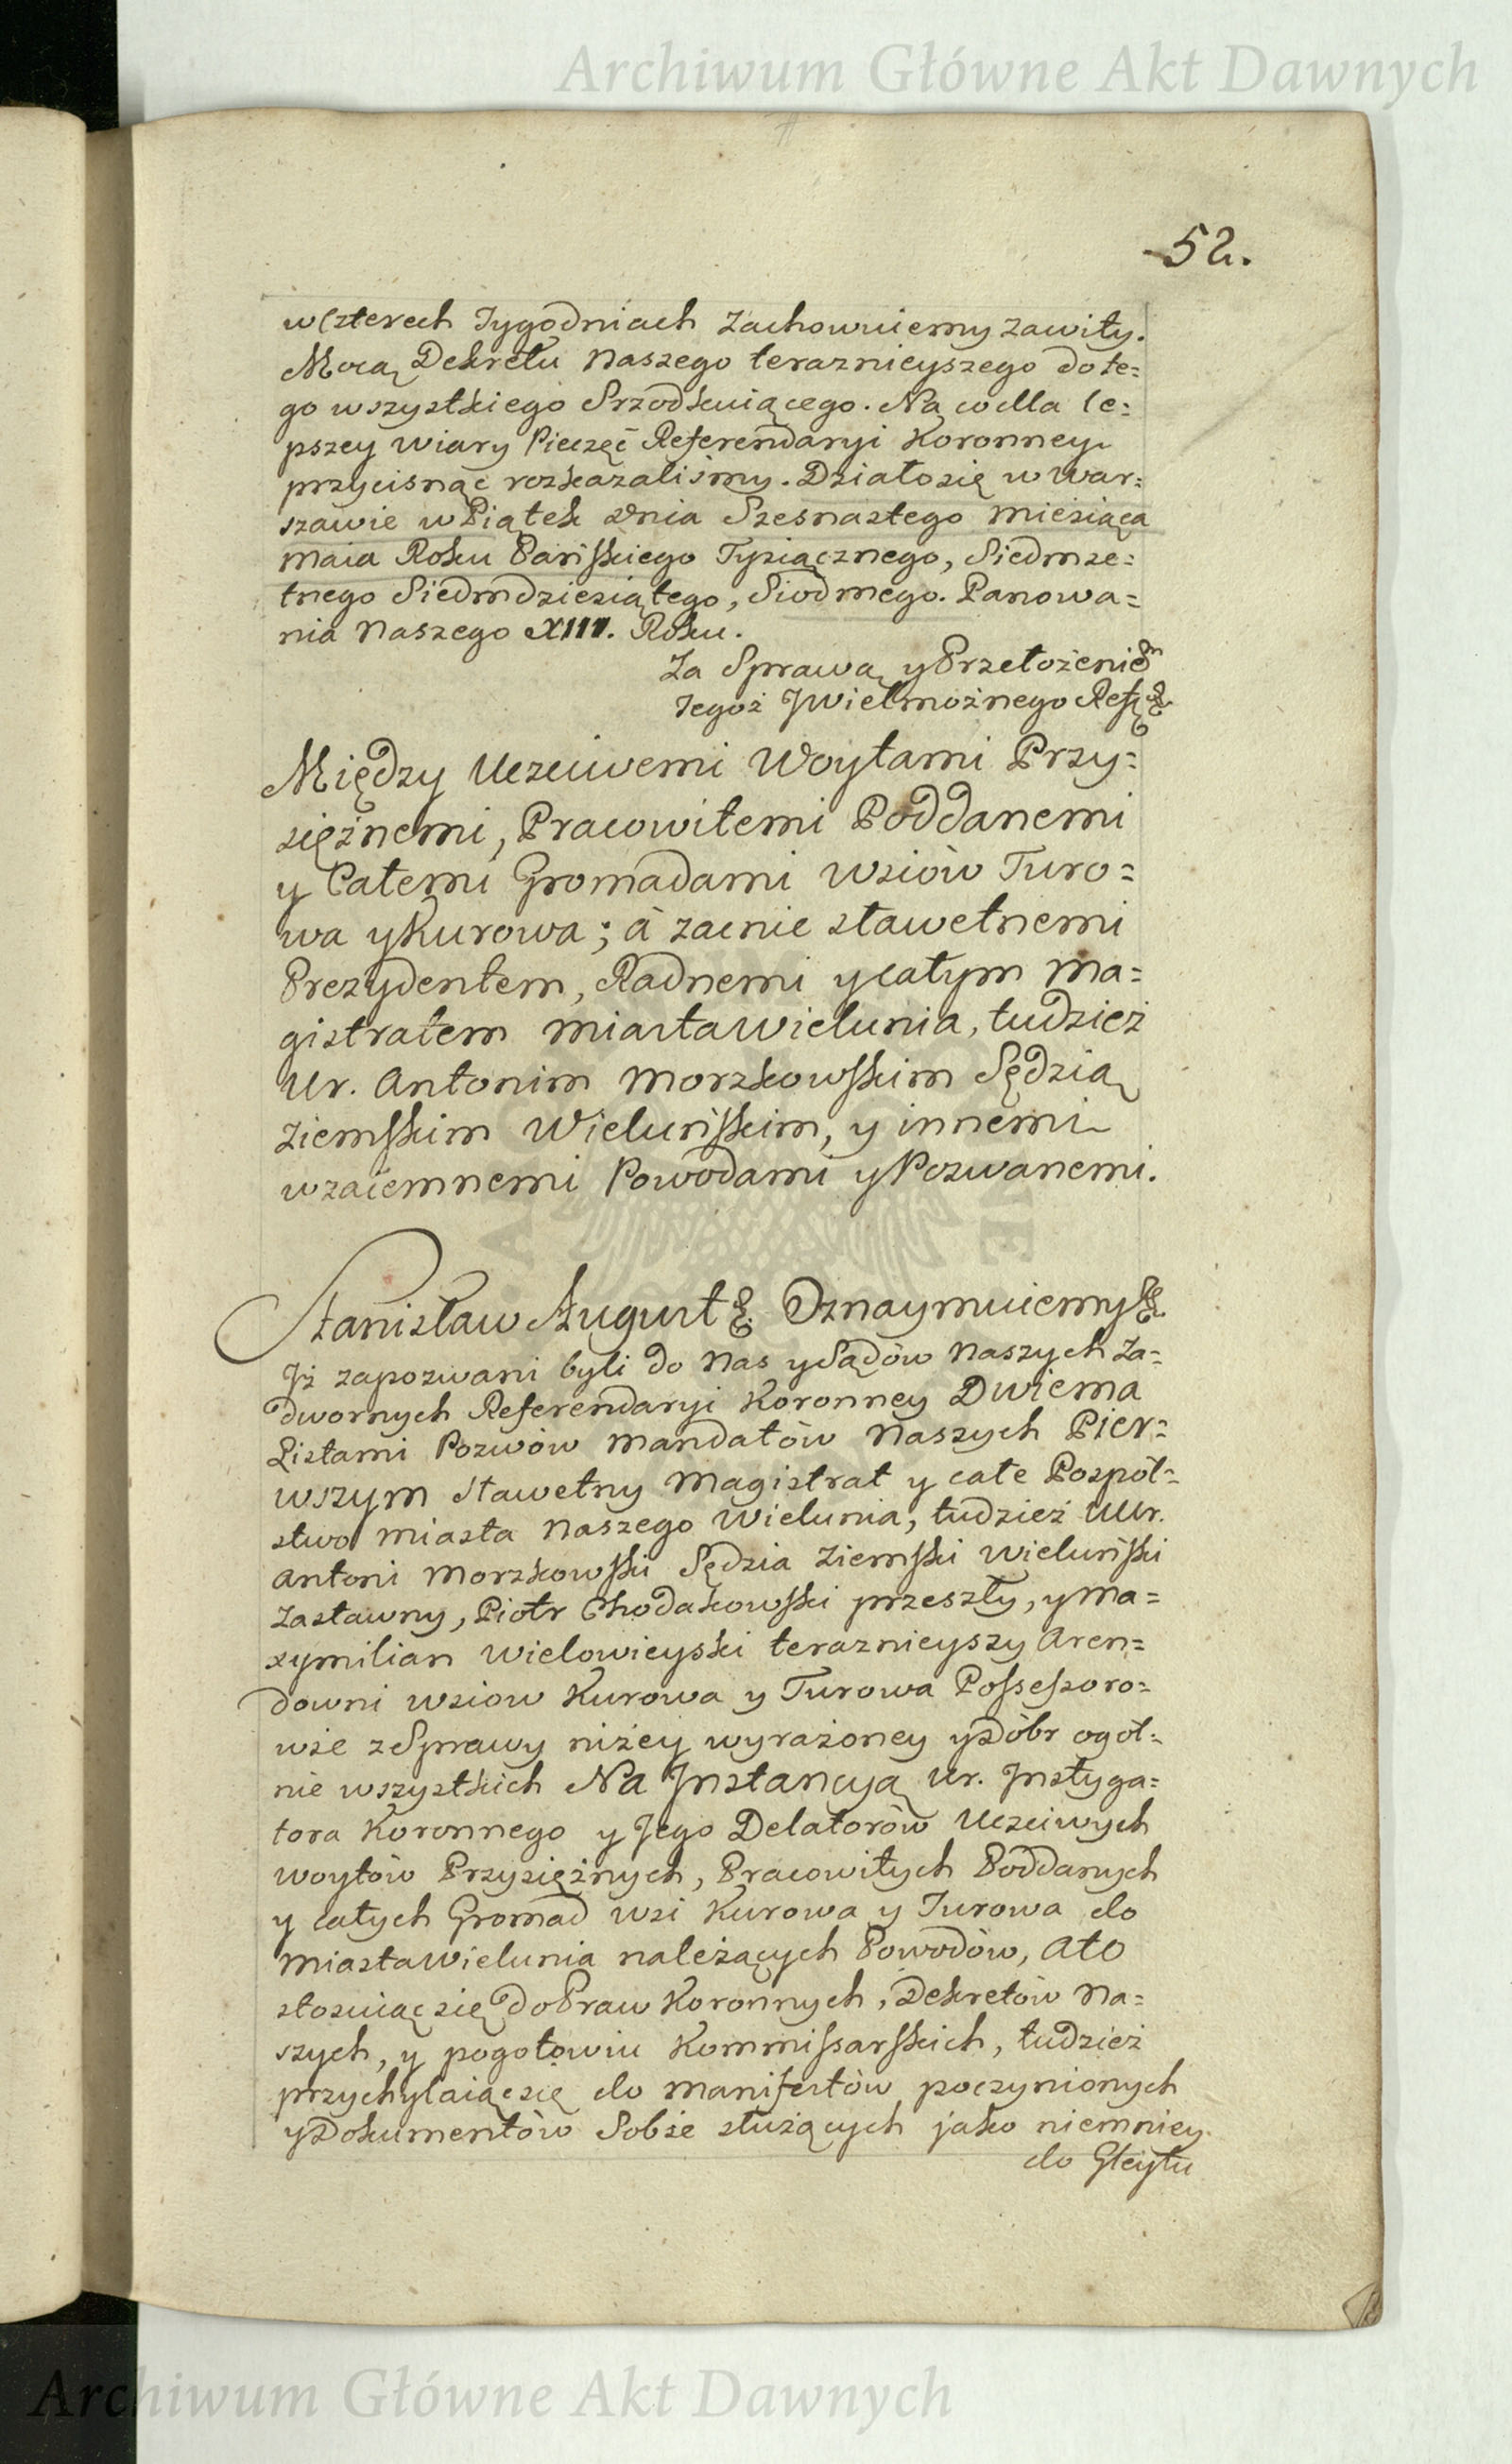 Archiwum Główne Akt Dawnych
52.
w Czterech Tygodniach Zachowuiemy zawity.
Mocą Dekretu Naszego teraznieyszego do te=
go wszystkiego Srzodkuiącego. Na co dla le=
pszey wiary Pieczęć Referendaryi Koronney
przycisnąć rozkazalismy. Działo się w War=
szawie w Piątek dnia Szesnastego miesiąca
Maia Roku Pańskiego Tysiącznego, Siedmse=
tnego Siedmdziesiątego, Siodmego. Panowa=
nia Naszego XIII. Roku.
Za Sprawą y Przełożeniem
Tegoż JWielmożnego Ref: &
Między Uczciwemi Woytami Przy=
siężnemi, Pracowitemi Poddanemi
y Całemi Gromadami wsiów Turo=
wa y Kurowa; à zacnie sławetnemi
Prezydentem, Radnemi y całym Ma=
gistratem miasta Wielunia, tudzież
Ur. Antonim Morzkowskim Sędzią
Ziemskim Wieluńskim, y innemi
wzaiemnemi Powodami y Pozwanemi.
Stanisław August &. Oznaymuiemy &.
Jż zapozwani byli do Nas y Sądów Naszych Za=
dwornych Referendaryi Koronney Dwiema
Listami Pozwów Mandatów Naszych Pier=
wszym sławetny Magistrat y całe Pospól=
stwo miasta Naszego Wielunia, tudzież UUr.
Antoni Morzkowski Sędzia Ziemski Wieluński
Zastawny, Piotr Chodakowski przeszły, y Ma=
xymilian Wielowieyski teraznieyszy Aren=
downi wsiow Kurowa y Turowa Possessoro=
wie z Sprawy niżey wyrażoney y Dóbr ogól=
nie wszystkich Na Jnstancyą Ur. Jnstyga=
tora Koronnego y Jego Delatorów Uczciwych
Woytów Przysiężnych, Pracowitych Poddanych
y całych Gromad wsi Kurowa y Turowa do
Miasta Wielunia należących Powodów, Ato
stosuiąc się do Praw Koronnych, Dekretów Na=
szych, y pogotowiu Kommissarskich, tudzież
przychylaiąc się do Manifestów poczynionych
y Dokumentów Sobie służących jako niemniey
do Gleytu
Archiwum Główne Akt Dawnych